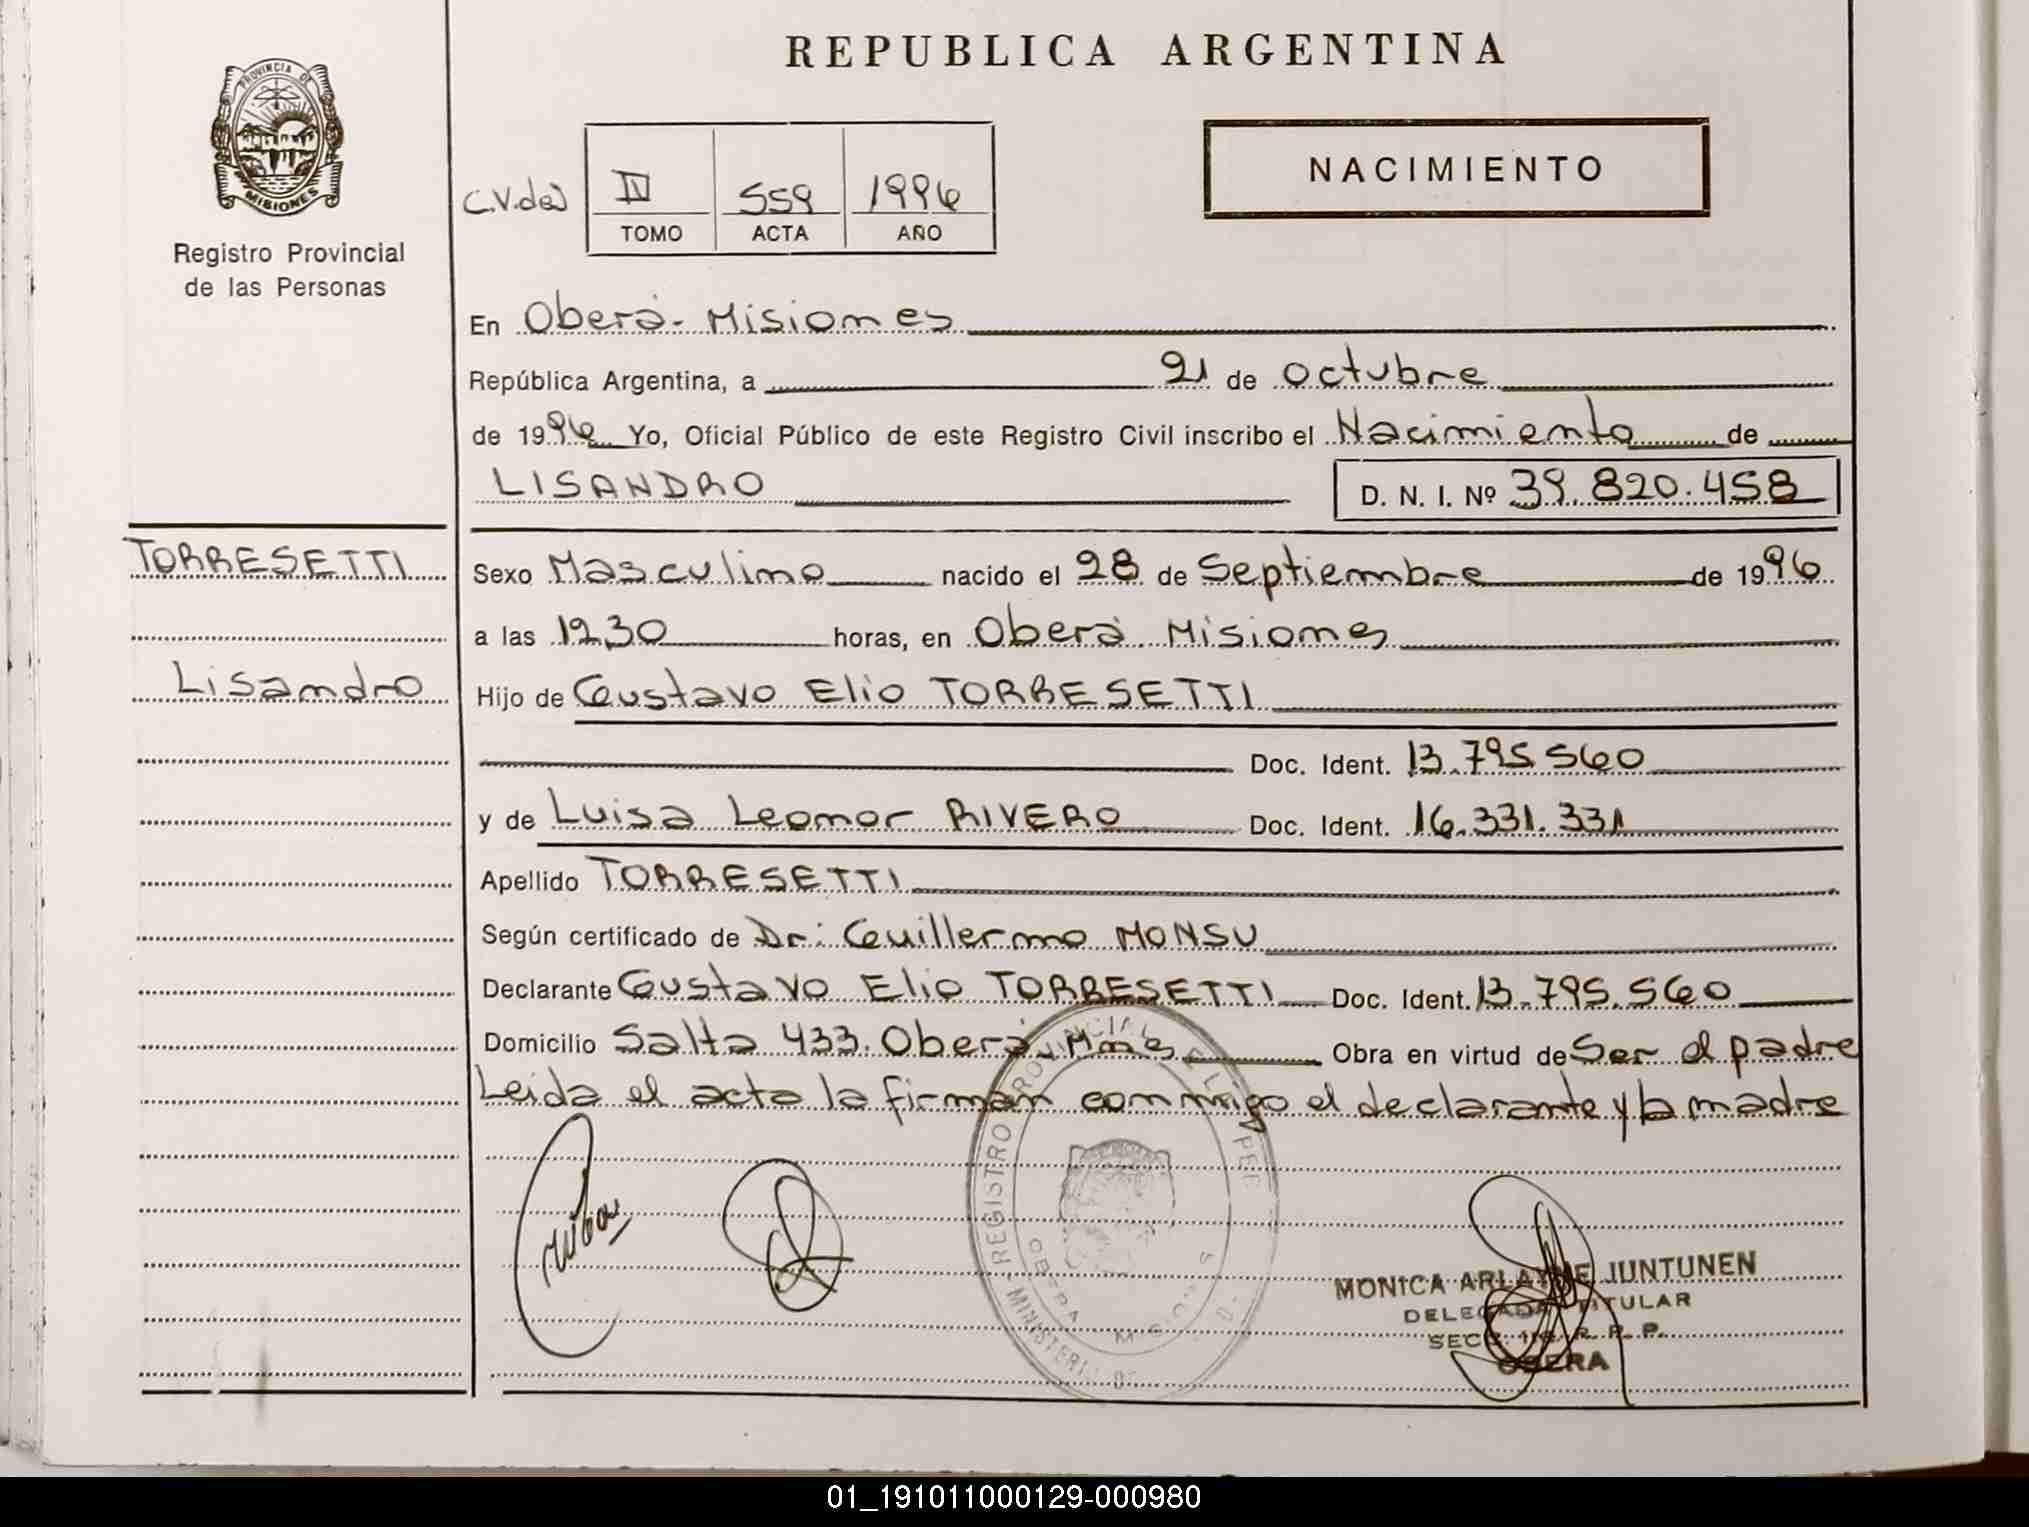 REPUBLICA ARGENTINA
PROVINCIA DE
MISIONES
Registro Provincial
de las Personas
C.V.de)
IV 559 1996
TOMO ACTA AÑO
NACIMIENTO
En Oberá - Misiones
República Argentina, a 21 de octubre
de 1996 Yo, Oficial Público de este Registro Civil inscribo el Nacimiento de
LISANDRO D. N. I. Nº 39.820.458
TORRESETTI
Lisandro
Sexo Masculino nacido el 28 de Septiembre de 1996
a las 12,30 horas, en Oberá Misiones
Hijo de Gustavo Elio TORRESETTI
Doc. Ident. 13.795.560
y de Luisa Leonor RIVERO Doc. Ident. 16.331.331
Apellido TORRESETTI
Según certificado de Dr: Guillermo MONSU
Declarante Gustavo Elio TORRESETTI Doc. Ident. 13.795.560
Domicilio Salta 433. Oberá, Mnes Obra en virtud de Ser el padre
Leida el acta la firman conmigo el declarante y la madre
REGISTRO PROVINCIAL DE LAS PER
OBERA MISIONES
MINISTERIO DE
MONICA ARLAYNE JUNTUNEN
DELEGADA TITULAR
SECC. R. P. P.
OBERA
01_191011000129-000980